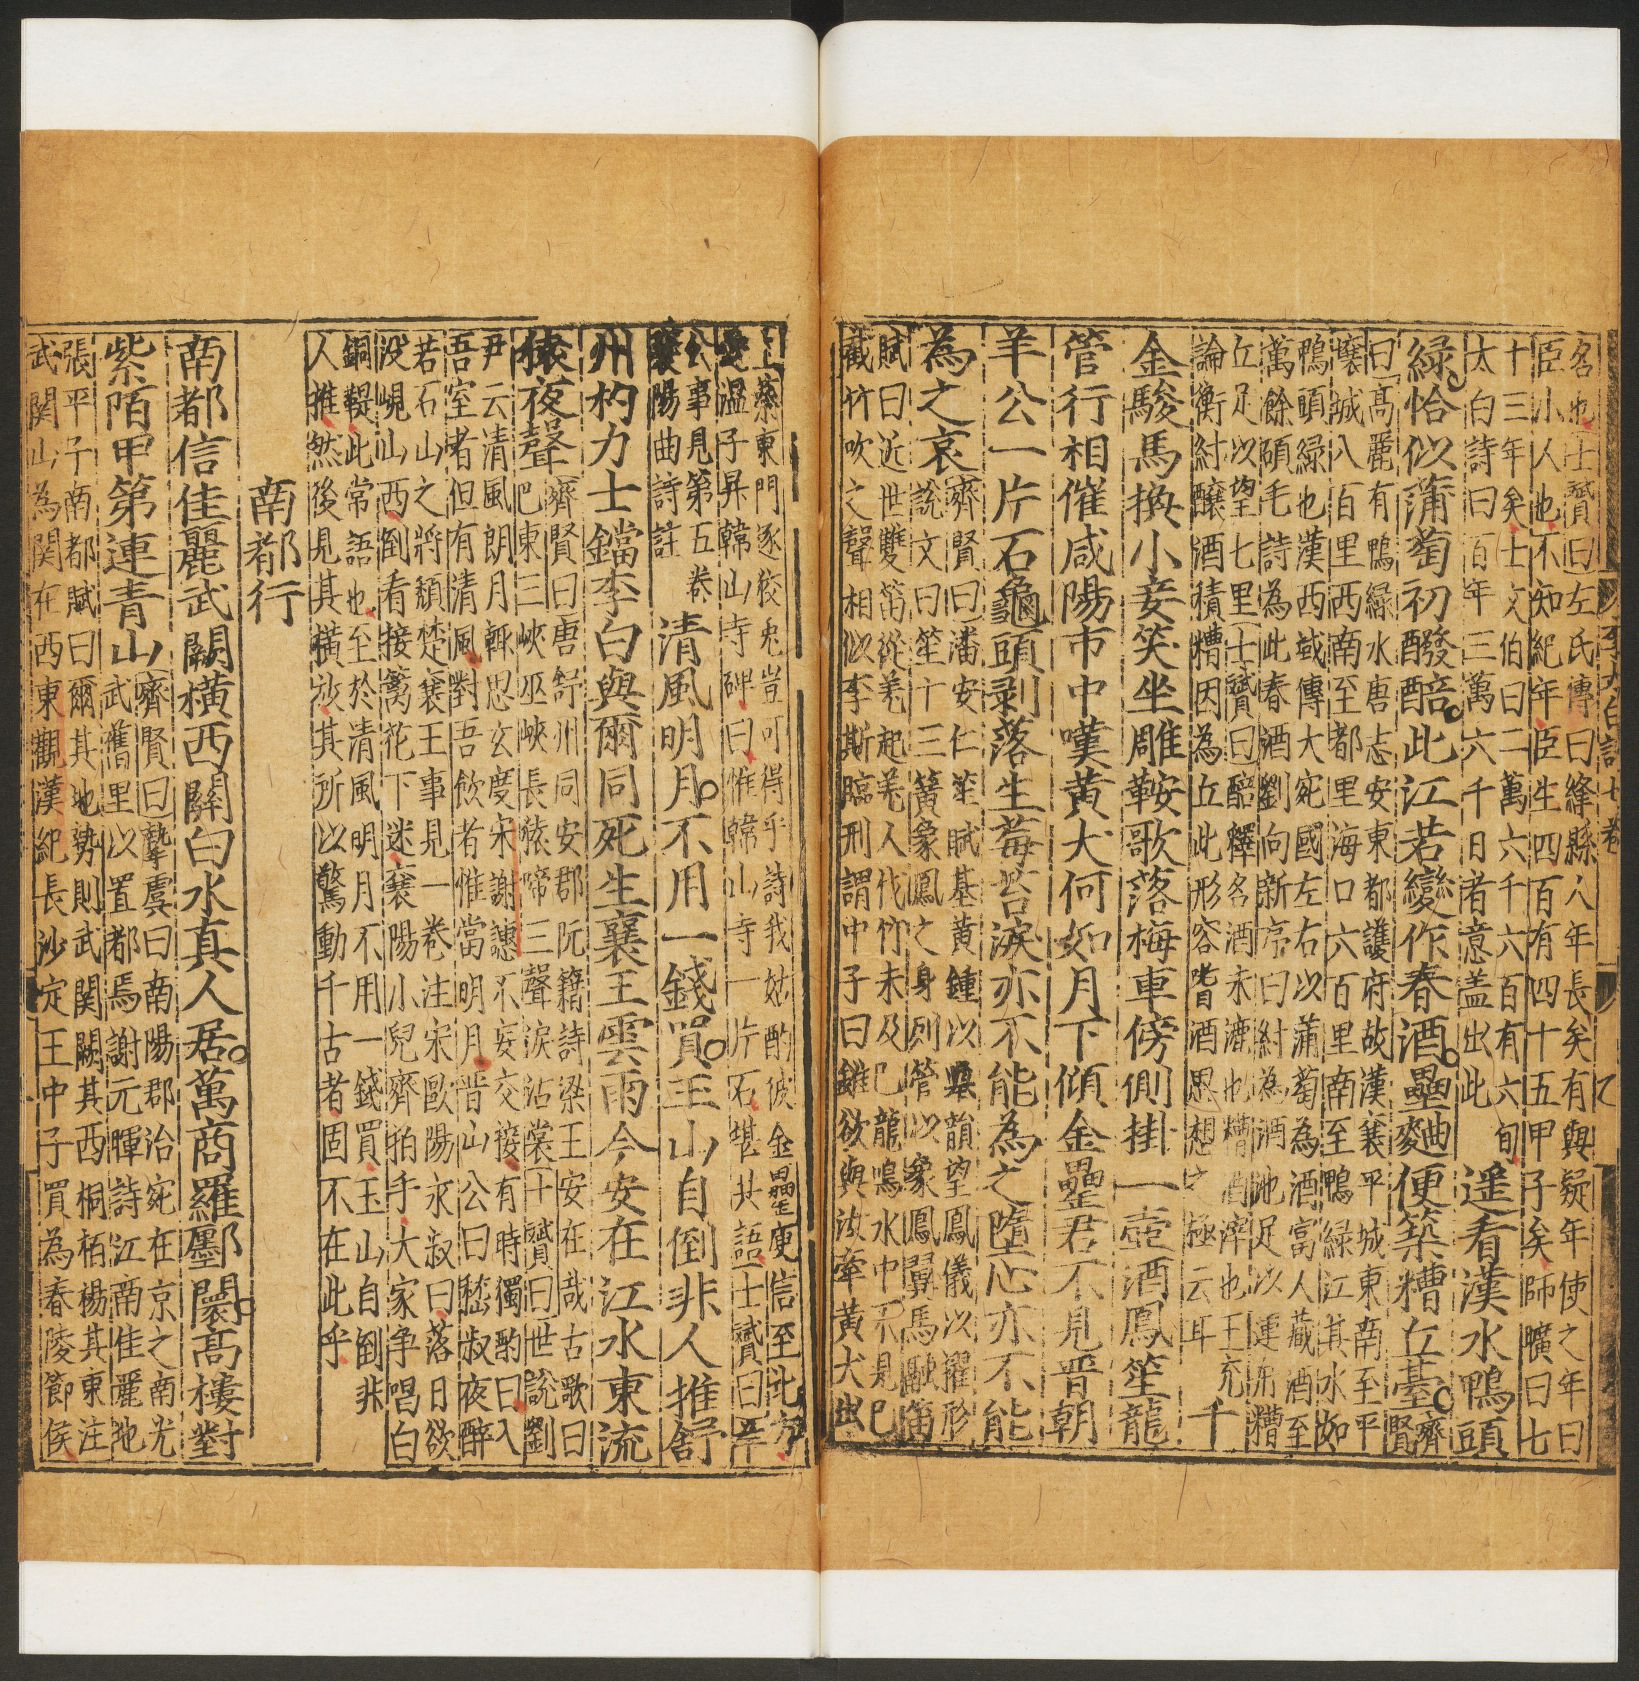 李太白詩七卷
名也士贇曰左氏傳曰絳縣人年長矣有與疑年使之年曰
臣小人也不知紀年臣生四百有四十五甲子矣師曠曰七
十三年矣士文伯曰二萬六千六百有六旬
太白詩曰百年三萬六千日者意盖出此
遥看漢水鴨頭
綠恰似蒲萄初醱醅此江若變作春酒壘麴便築糟丘臺齊賢
曰高麗有鴨綠水唐志安東都護府故漢襄平城東南至平
壤城八百里西南至都里海口六百里南至鴨綠江其水如
鴨頭綠也漢西域傳大宛國左右以蒲萄為酒富人藏酒至
萬餘碩毛詩為此春酒劉向新序曰紂為酒池足以運舟糟
丘足以望七里士贇曰醅釋名酒未漉也糟酒滓也王充
論衡紂釀酒積糟因為丘此形容嗜酒思想之極云耳
千
金駿馬換小妾笑坐雕鞍歌落梅車傍側掛一壺酒鳳笙龍
管行相催咸陽市中嘆黃犬何如月下傾金罍君不見晋朝
羊公一片石龜頭剥落生莓苔淚亦不能為之墮心亦不能
為之哀
齊賢曰潘安仁笙賦基黃鍾以舉韻望鳳儀以擢形
說文曰笙十三簧象鳳之身列管以象鳳翼馬融笛
賦曰近世雙笛從羌起羌人伐竹未及已龍鳴水中不見已
截竹吹之聲相似李斯臨刑謂中子曰雖欲與汝牽黃犬出
上蔡東門逐狡兎豈可得乎詩我姑酌彼金罍庾信至北方
愛溫子昇韓山寺碑曰惟韓山寺一片石堪共語士贇曰羊
公事見第五卷
襄陽曲詩註
清風明月不用一錢買玉山自倒非人推舒
州杓力士鐺李白與爾同死生襄王雲雨今安在江水東流
猿夜聲
齊賢曰唐舒州同安郡阮籍詩梁王安在哉古歌曰
巴東三峽巫峽長猿啼三聲淚沾裳士贇曰世說劉
尹云清風朗月輒思玄度宋謝譓不妄交接有時獨酌曰入
吾室者但有清風對吾飲者惟當明月晋山公曰嵇叔夜醉
若石山之將頹楚襄王事見一卷注宋歐陽永叔曰落日欲
没峴山西倒看接䍦花下迷襄陽小兒齊拍手大家争唱白
銅鞮此常語也至於清風明月不用一錢買玉山自倒非
人推然後見其橫放其所以驚動千古者固不在此乎
南都行
南都信佳麗武闕橫西關白水真人居萬商羅鄽闤高樓對
紫陌甲第連青山
齊賢曰摯虞曰南陽郡治宛在京之南光
武舊里以置都焉謝元暉詩江南佳麗地
張平子南都賦曰爾其地勢則武闕關其西桐栢楊其東注
武関山為関在西東觀漢紀長沙定王中子買為春陵節侯